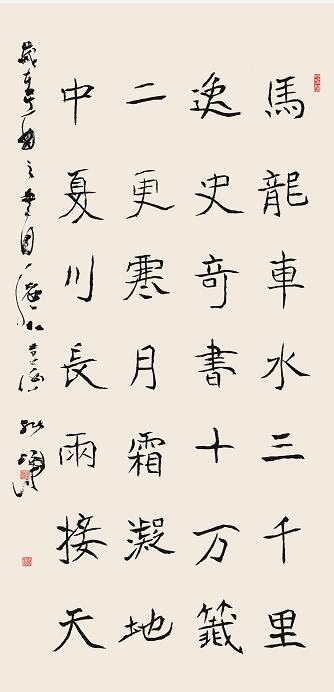 馬龍車水三千里
逸史奇書十万籤
二更寒月霜凝地
中夏川長雨接天